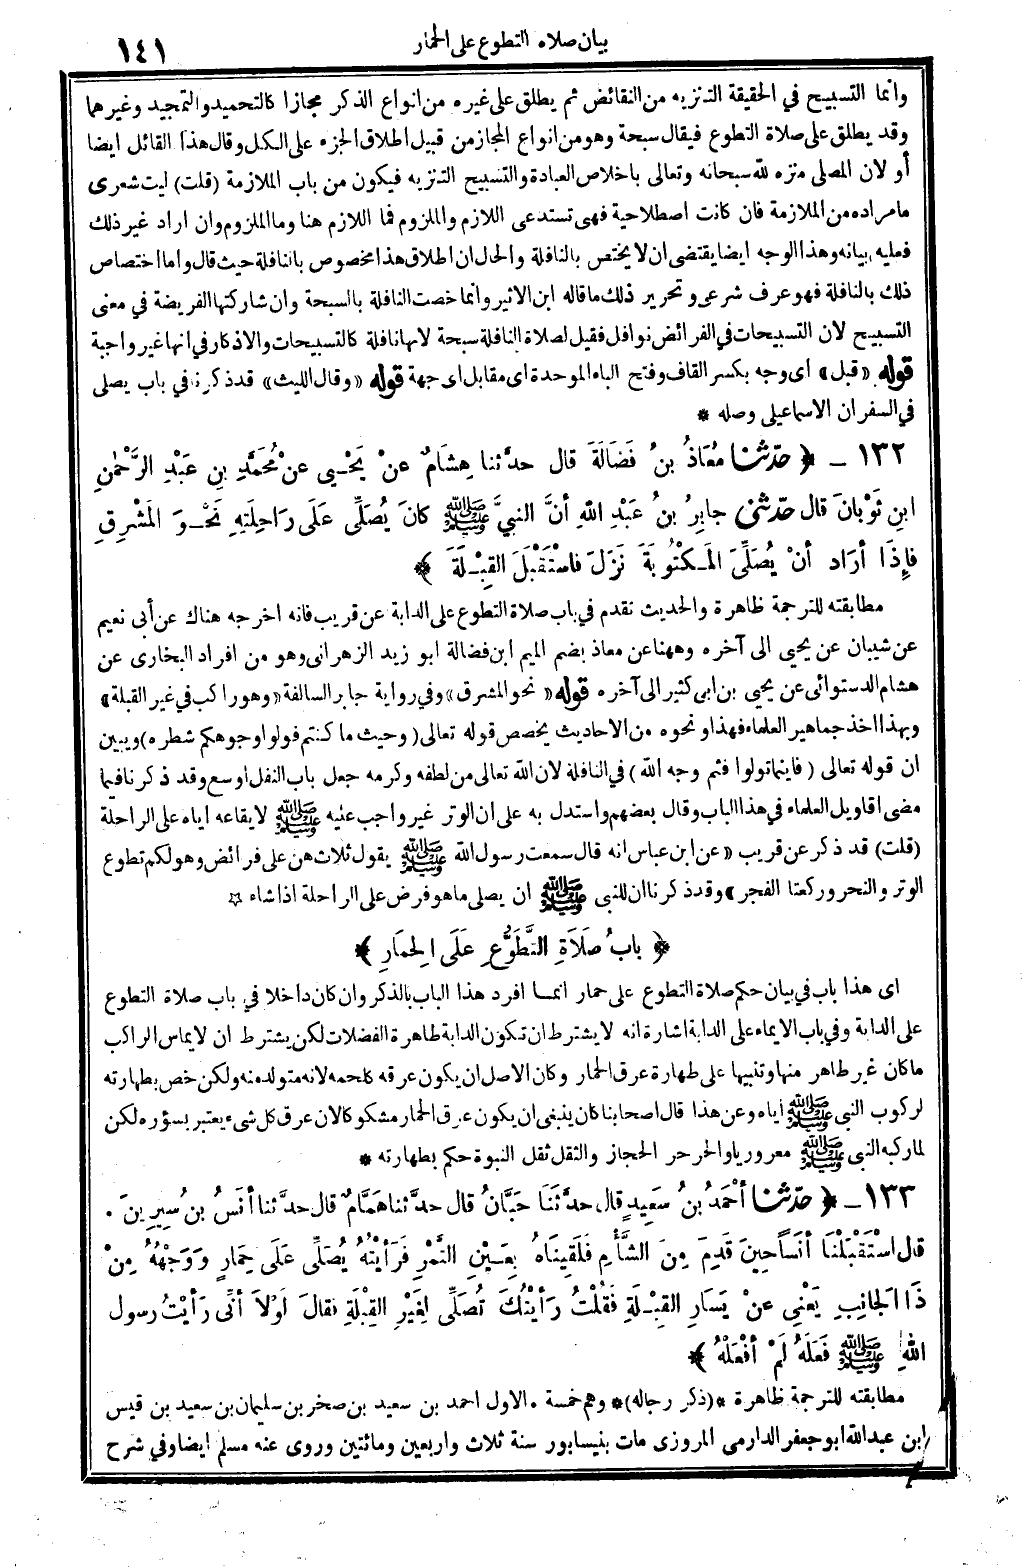 بيان صلاة التطوع على الحمار
١٤١
وانما التسبيح في الحقيقة التنزيه من النقائض ثم يطلق على غيره من انواع الذكر مجازا كالتحميد والتمجيد وغيرهما
وقد يطلق على صلاة التطوع فيقال سبحة وهو من انواع المجاز من قبيل اطلاق الجزء على الكل وقال هذا القائل ايضا
أو لان المصلى منزه لله سبحانه وتعالى باخلاص العبادة والتسبيح التنزيه فيكون من باب الملازمة (قلت) ليت شعرى
ما مراده من الملازمة فان كانت اصطلاحية فهى تستدعى اللازم والملزوم فما اللازم هنا وما الملزوم وان اراد غير ذلك
فعليه بيانه وهذا الوجه ايضا يقتضى ان لا يختص بالنافلة والحال ان اطلاق هذا مخصوص بالنافلة حيث قال واما اختصاص
ذلك بالنافلة فهو عرف شرعى وتحرير ذلك ما قاله ابن الاثير وانما خصت النافلة بالسبحة وان شاركتها الفريضة في معنى
التسبيح لان التسبيحات في الفرائض نوافل فقيل لصلاة النافلة سبحة لانها نافلة كالتسبيحات والاذكار في انها غير واجبة
قوله «قبل» اى وجه بكسر القاف وفتح الباء الموحدة اى مقابل اى جهة قوله «وقال الليث» قد ذكرنا في باب يصلى
في السفر ان الاسماعيلى وصله *
١٣٢ ـ ﴿ حدّثنا مُعَاذُ بنُ فَضَالَةَ قال حدَّثنا هِشَامٌ عنْ يَحْيى عنْ مُحَمَّدِ بنِ عَبْدِ الرَّحْمنِ
ابنِ ثَوْبانَ قال حدّثني جابِرُ بنُ عَبْدِ اللهِ أنَّ النبيَّ ﷺ كانَ يُصَلِّى عَلَى رَاحِلَتِهِ نَحْوَ المَشْرِقِ
فإِذَا أرَادَ أنْ يُصَلِّىَ المَكْتُوبَةَ نَزَلَ فاسْتَقْبَلَ القِبْلَةَ ﴾
مطابقته للترجمة ظاهرة والحديث تقدم في باب صلاة التطوع على الدابة عن قريب فانه اخرجه هناك عن أبى نعيم
عن شيبان عن يحيى الى آخره وههنا عن معاذ بضم الميم ابن فضالة ابو زيد الزهرانى وهو من افراد البخارى عن
هشام الدستوائى عن يحيى بن ابى كثير الى آخره قوله «نحو المشرق» وفي رواية جابر السالفة «وهو راكب في غير القبلة»
وبهذا اخذ جماهير العلماء فهذا ونحوه من الاحاديث يخصص قوله تعالى (وحيث ما كنتم فولوا وجوهكم شطره) ويبين
ان قوله تعالى (فاينما تولوا فثم وجه الله) في النافلة لان الله تعالى من لطفه وكرمه جعل باب النفل اوسع وقد ذكرنا فيما
مضى اقاويل العلماء في هذا الباب وقال بعضهم واستدل به على ان الوتر غير واجب عليه ﷺ لايقاعه اياه على الراحلة
(قلت) قد ذكر عن قريب «عن ابن عباس انه قال سمعت رسول الله ﷺ يقول ثلاث هن على فرائض وهو لكم تطوع
الوتر والنحر وركعتا الفجر» وقد ذكرنا ان للنبى ﷺ ان يصلى ما هو فرض على الراحلة اذا شاء ☆
﴿ بابُ صَلَاةِ التَّطَوُّعِ عَلَى الحِمَارِ ﴾
اى هذا باب في بيان حكم صلاة التطوع على حمار انما افرد هذا الباب بالذكر وان كان داخلا في باب صلاة التطوع
على الدابة وفي باب الايماء على الدابة اشارة انه لا يشترط ان تكون الدابة طاهرة الفضلات لكن يشترط ان لا يماس الراكب
ما كان غير طاهر منها وتنبيها على طهارة عرق الحمار وكان الاصل ان يكون عرقه كلحمه لانه متولد منه ولكن خص بطهارته
لركوب النبى ﷺ اياه وعن هذا قال اصحابنا كان ينبغى ان يكون عرق الحمار مشكوكا لان عرق كل شىء يعتبر بسؤره لكن
لما ركبه النبى ﷺ معروريا والحر حر الحجاز والثقل ثقل النبوة حكم بطهارته *
١٣٣ ـ ﴿ حدّثنا أحْمَدُ بنُ سَعِيدٍ قال حدَّثَنَا حَبَّانُ قال حدَّثنا هَمَّامٌ قال حدثنا أنَسُ بنُ سِيرِينَ .
قال اسْتَقْبَلْنَا أنَسًا حِينَ قَدِمَ مِنَ الشَّأْمِ فَلَقِينَاهُ بِعَيْنِ التَّمْرِ فَرَأيْتُهُ يُصَلِّى عَلَى حِمَارٍ وَوَجْهُهُ مِنْ
ذَا الجَانِبِ يَعْنِى عنْ يَسَارِ القِبْلَةِ فَقُلْتُ رَأيْتُكَ تُصَلِّى لِغَيْرِ القِبْلَةِ فقالَ لَوْلاَ أنِّى رَأيْتُ رسولَ
اللهِ ﷺ فَعَلَهُ لَمْ أفْعَلْهُ ﴾
مطابقته للترجمة ظاهرة *(ذكر رجاله)* وهم خمسة . الاول احمد بن سعيد بن صخر بن سليمان بن سعيد بن قيس
ابن عبدالله ابو جعفر الدارمى المروزى مات بنيسابور سنة ثلاث واربعين ومائتين وروى عنه مسلم ايضا وفي شرح